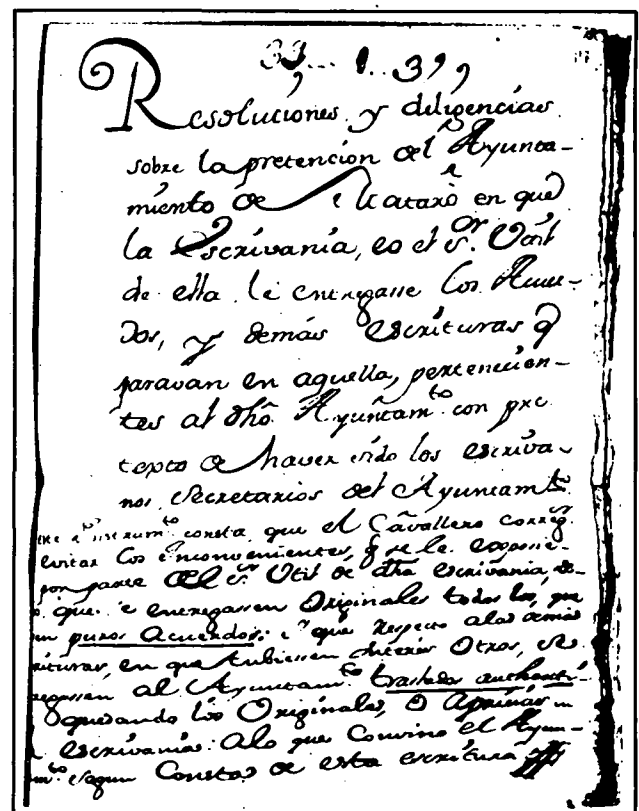 33... 1. 3,,
Resoluciones y diligencias
sobre la pretencion del Ayunta-
miento de Mataró en que
la Escrivania, eo el Sr. Util
de ella le entregasse los Acuer-
dos, y demás Escrituras q
paravan en aquella, pertenecien-
tes al dhô Ayuntamto con pre
texto de haver sido los escriva-
nos Secretarios del Ayuntamto
consta que el Cavallero correg
evitar los inconvenientes, q se le exposie-
por parte del Sr Util de dha escrivania, de-
que se entregassen Originales todos los, que
puros Acuerdos; y que respecto a los demás
crituras, en que tubiessen interés Otros, se
regassen al Ayuntamto traslados authenti-
quedando los Originales, o Aprisias in
escrivania: A lo que Convino el Ayun-
mto segun Consta de esta escritura